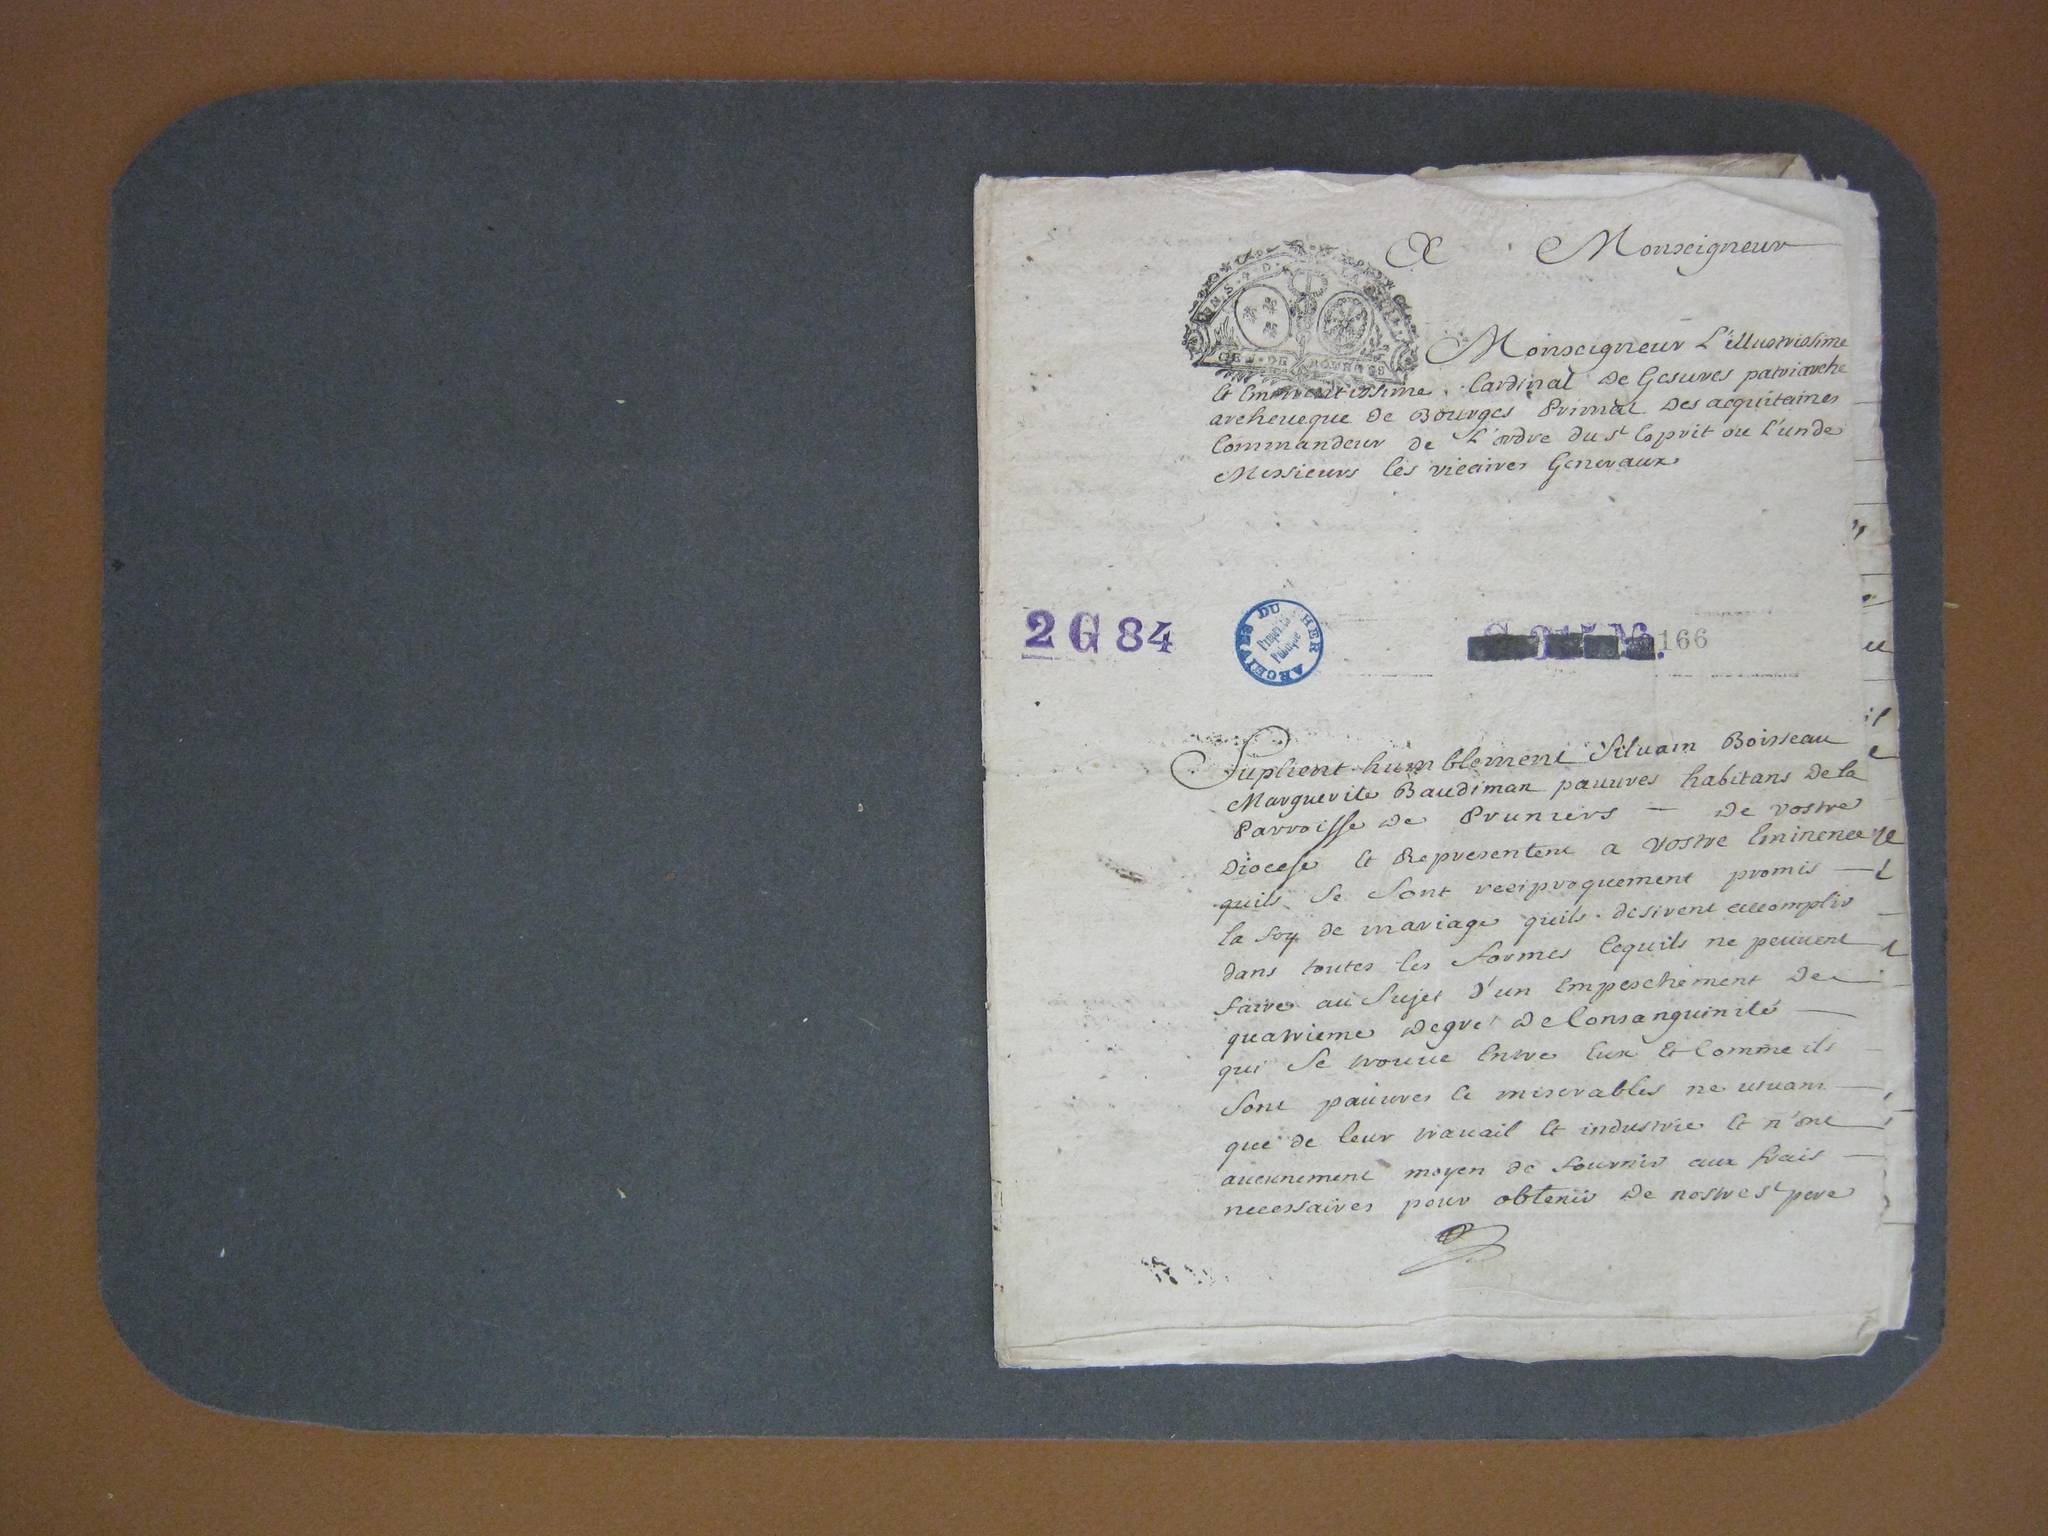 A Monseigneur
Monseigneur L'illustrissime
Et Eminentissime Cardinal De Gesvres patriarche
archeveque De Bourges Primat Des acquitaines
Commandeur de L'ordre du St Esprit ou L'un de
Messieurs les vicaires Generaux
2 G 84
ARCHIVES DU CHER
Propriété
Publique
166
GEN. DE BOURGES
Suplient humblement Silvain Boisseau
Marguerite Baudiman pauvres habitans De la
Parroisse De Pruniers — De vostre
Diocese Et Representent a vostre Eminence
quils Se Sont reciproquement promis —
la foy de mariage quils desirent accomplir
dans toutes les formes Cequils ne peuvent
faire au Sujet d'un Empeschement De
quatrieme Degré De Consanguinité —
qui Se trouve Entre Eux Et Comme ils
Sont pauvres Et miserables ne vivant —
que de leur travail Et industrie Et n'ont
aucunement moyen de fournir aux frais —
necessaires pour obtenir De nostre St pere